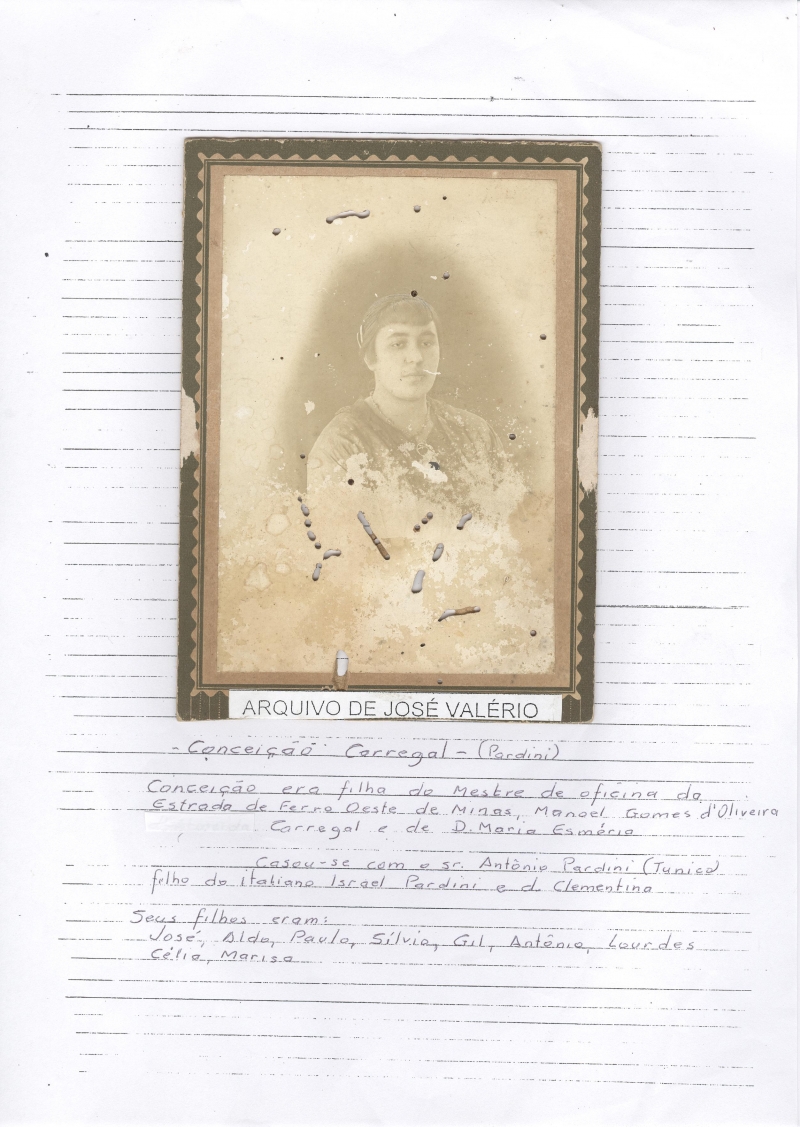 ARQUIVO DE JOSÉ VALÉRIO
- Conceição Carregal - (Pardini)
Conceição era filha do Mestre de oficina da
Estrada de Ferro Oeste de Minas, Manoel Gomes d'Oliveira
Carregal e de D. Maria Esméria
Casou-se com o sr. Antônio Pardini (Tunico)
filho do italiano Israel Pardini e d. Clementina
Seus filhos eram:
José, Aldo, Paulo, Sílvio, Gil, Antônio, Lourdes
Célia, Marisa